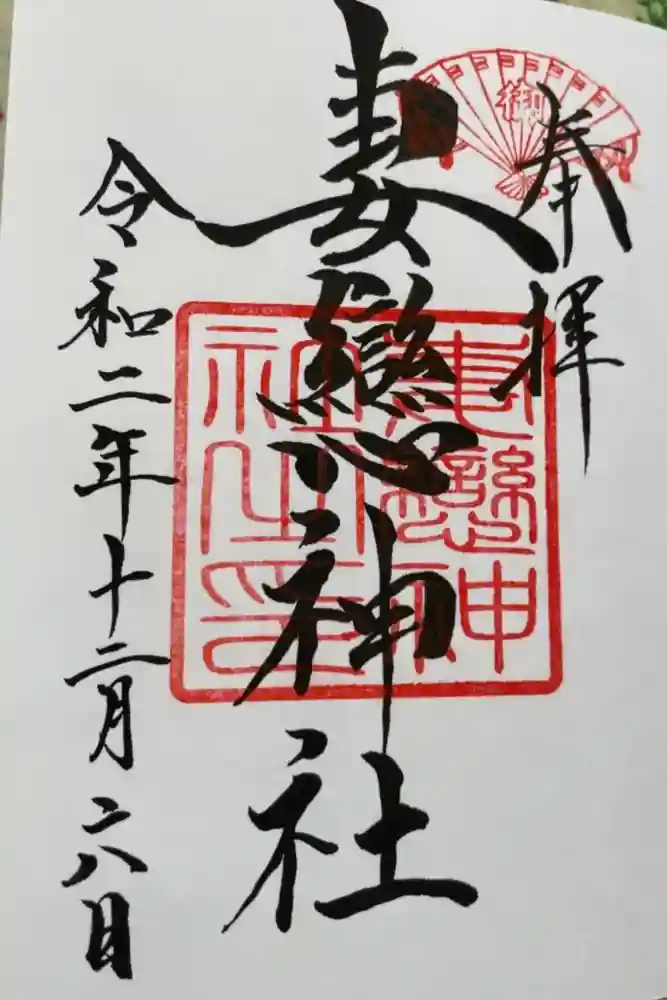 奉拝
御
妻戀神社
妻戀神
社之印
令和二年十二月六日